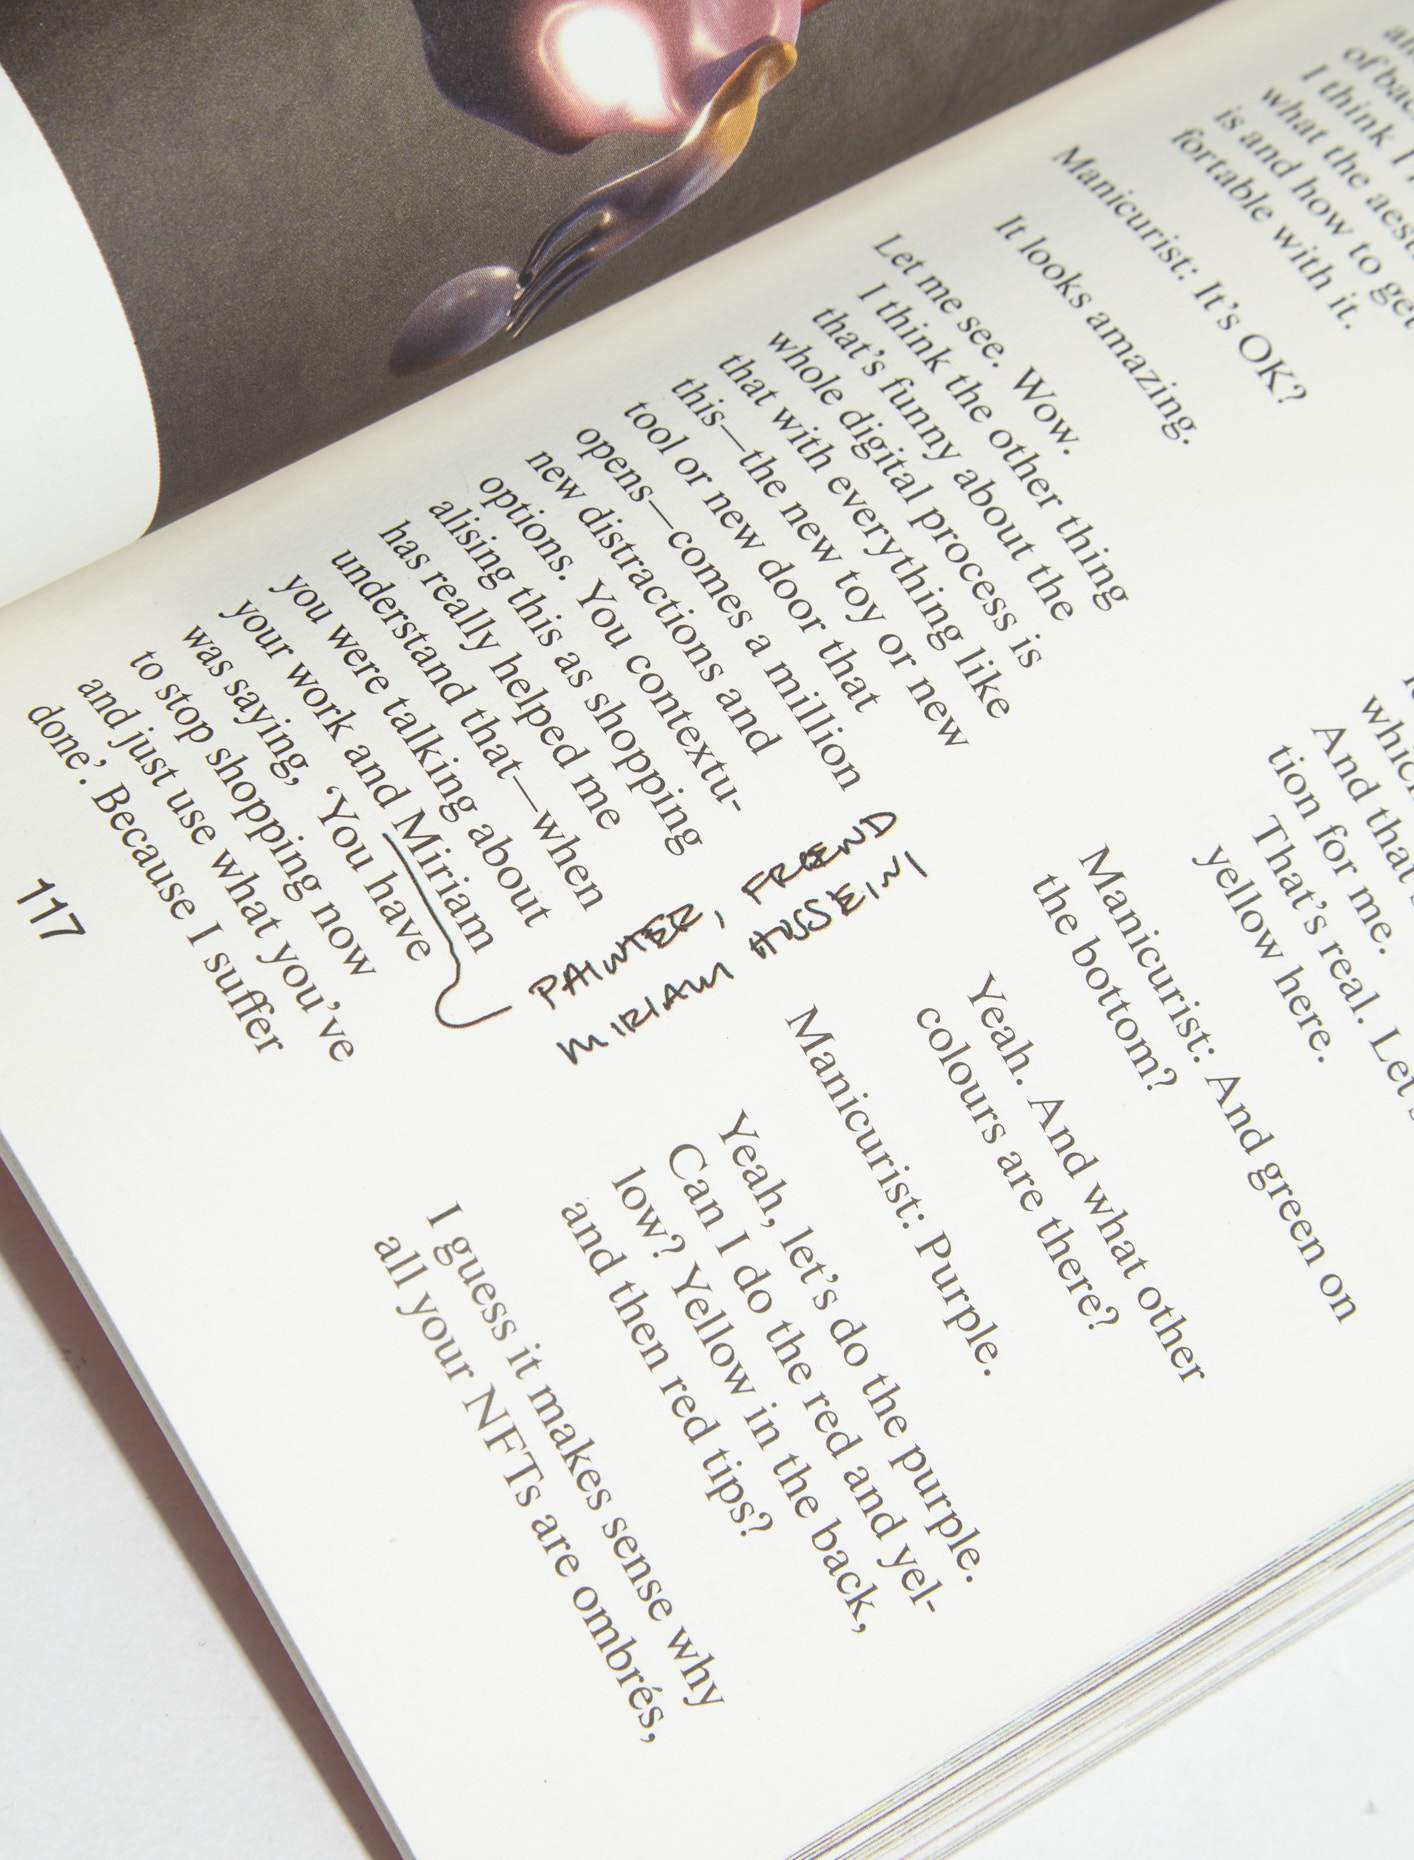 of bac
I think I
what the aest
is and how to get
fortable with it.
Manicurist: It's OK?
It looks amazing.
Let me see. Wow.
I think the other thing
that's funny about the
whole digital process is
that with everything like
this—the new toy or new
tool or new door that
opens—comes a million
new distractions and
options. You contextu-
alising this as shopping
has really helped me
understand that—when
you were talking about
your work and Miriam
was saying, ‘You have
to stop shopping now
and just use what you've
done’. Because I suffer
117
PAINTER, FRIEND
MIRIAM HUSSEINI
which
And that
tion for me.
That's real. Let's
yellow here.
Manicurist: And green on
the bottom?
Yeah. And what other
colours are there?
Manicurist: Purple.
Yeah, let's do the purple.
Can I do the red and yel-
low? Yellow in the back,
and then red tips?
I guess it makes sense why
all your NFTs are ombrés,